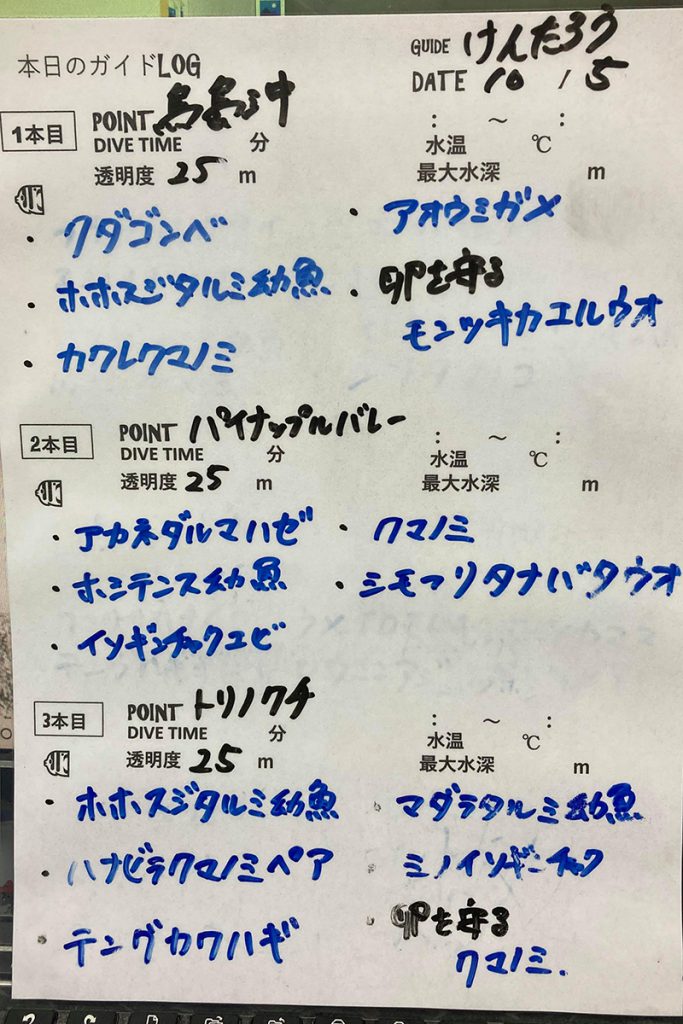 本日のガイドLOG
GUIDE けんたろう
DATE 10 / 5
1本目
POINT
: ～ :
DIVE TIME 分
水温 ℃
透明度 25 m
最大水深 m
・クダゴンベ
・アオウミガメ
・ホホスジタルミ幼魚
・卵を守る
モンツキカエルウオ
・カクレクマノミ
2本目
POINT パイナップルバレー
: ～ :
DIVE TIME 分
水温 ℃
透明度 25 m
最大水深 m
・アカネダルマハゼ
・クマノミ
・ホシテンス幼魚
・シモフリタナバタウオ
・イソギンチャクエビ
3本目
POINT トリノクチ
: ～ :
DIVE TIME 分
水温 ℃
透明度 25 m
最大水深 m
・ホホスジタルミ幼魚
・マダラタルミ幼魚
・ハナビラクマノミペア
・ミノイソギンチャク
・テングカワハギ
・卵を守る
クマノミ.